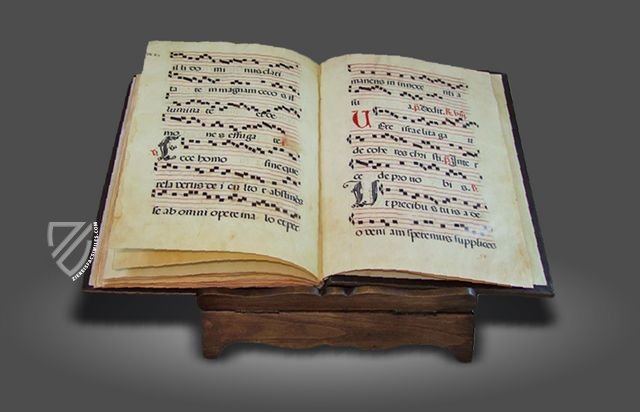 il li do mi nus clari
ta te m magnam ceco s il
lumina te ce ce
mo ne s effuga te
Ecce homo sine que
rela verus de i cu lto r abstinēs
se ab omni opere ma lo et per
manens in innoce nti a
su a. p. Dedit.
Vere israelita ga u
de core res chri sti Inte r
ce de pro no bi s. p.
Ut precibus tu is a de
o veni am speremus supplices
ZIEREIS FACSIMILES.COM